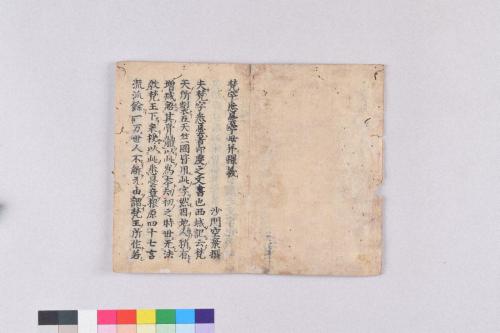 梵字悉曇字母并釋義
沙門空海撰
夫梵字悉曇者印度之文書也西域記云梵
天所製五天竺國皆用此字然因地人稍有
増減語其骨體以此為本劫初之時世無法
教梵王下来授以此悉曇章根原四十七言
流派餘一万世人不解元由謂梵王所作若